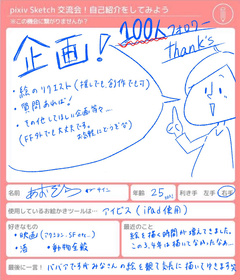 pixiv Sketch 交流会！自己紹介をしてみよう
※この機会に繋がりませんか？
100人フォロワー
thank's
企画！
・絵のリクエスト(推しでも創作でも可)
・質問あれば！
・その他してほしい企画等々…
(FF外でも大丈夫です。お気軽にどうぞ)
名前
年齢 25
利き手 左手 右手
使用しているお絵かきツールは…
アイビス(iPad使用)
好きなもの
・映画(アクション、SF etc…)
・酒 ・動物全般
最近のこと
絵を描く時間が増えてきました。
最後に一言！
ババアですがみなさんの絵を観て元気に描いて生きます